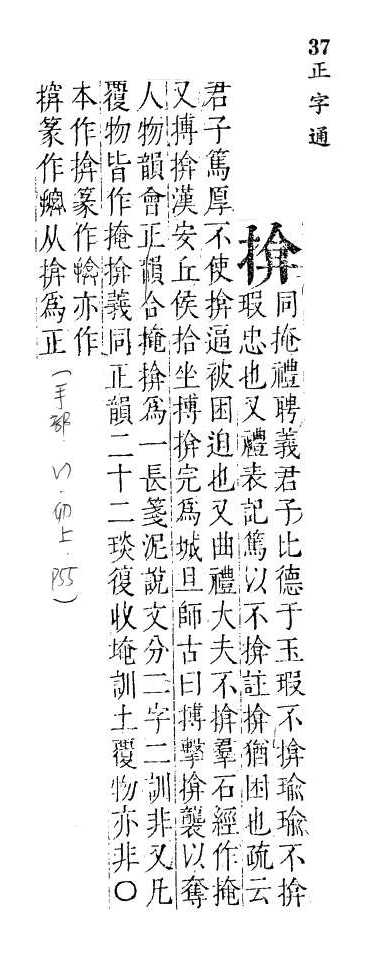 37 正字通
揜
同掩禮聘義君子比德于玉瑕不揜瑜瑜不揜
瑕忠也又禮表記篤以不揜註揜猶困也疏云
君子篤厚不使揜逼被困迫也又曲禮大夫不揜羣石經作掩
又搏揜漢安丘侯拾坐搏揜完爲城旦師古曰搏擊揜襲以奪
人物韻會正韻合掩揜爲一長箋泥說文分二字二訓非又凡
覆物皆作掩揜義同正韻二十二琰復收埯訓土覆物亦非〇
本作揜篆作亦作
篆作从揜爲正
(手部 卯上 P55)